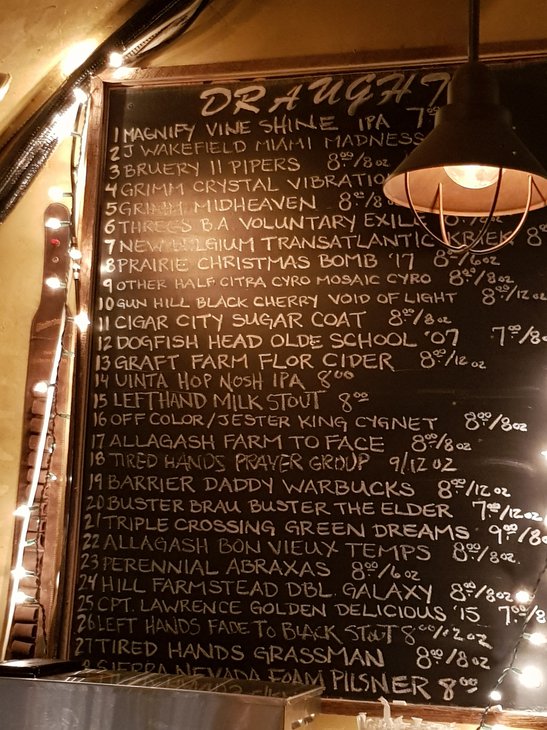 DRAUGHT
1 MAGNIFY VINE SHINE IPA 7
2 J WAKEFIELD MIAMI MADNESS
3 BRUERY 11 PIPERS 8.00/8 oz
4 GRIMM CRYSTAL VIBRATIO
5 GRIMM MIDHEAVEN 8.00/8
6 THREES B.A VOLUNTARY EXILE
7 NEW BELGIUM TRANSATLANTIC KRIEK 8
8 PRAIRIE CHRISTMAS BOMB '17 8.00/6 oz
9 OTHER HALF CITRA CYRO MOSAIC CYRO 8.00/8 oz
10 GUN HILL BLACK CHERRY VOID OF LIGHT 8.00/12 oz
11 CIGAR CITY SUGAR COAT 8.00/8 oz
12 DOGFISH HEAD OLDE SCHOOL '07 7.00/8
13 GRAFT FARM FLOR CIDER 8.00/12 oz
14 UINTA HOP NOSH IPA 8.00
15 LEFTHAND MILK STOUT 8.00
16 OFF COLOR/JESTER KING CYGNET 8.00/8 oz
17 ALLAGASH FARM TO FACE 8.00/8 oz
18 TIRED HANDS PRAYER GROUP 9/12 OZ
19 BARRIER DADDY WARBUCKS 8.00/12 oz
20 BUSTER BRAU BUSTER THE ELDER 7.00/12 oz
21 TRIPLE CROSSING GREEN DREAMS 9.00/8 o
22 ALLAGASH BON VIEUX TEMPS 8.00/8 oz.
23 PERENNIAL ABRAXAS 8.00/6 oz
24 HILL FARMSTEAD DBL. GALAXY 8.00/8 oz
25 CPT. LAWRENCE GOLDEN DELICIOUS '15 7.00/8
26 LEFT HANDS FADE TO BLACK STOUT 8.00/12 oz
27 TIRED HANDS GRASSMAN 8.00/8 oz
SIERRA NEVADA FOAM PILSNER 8.00